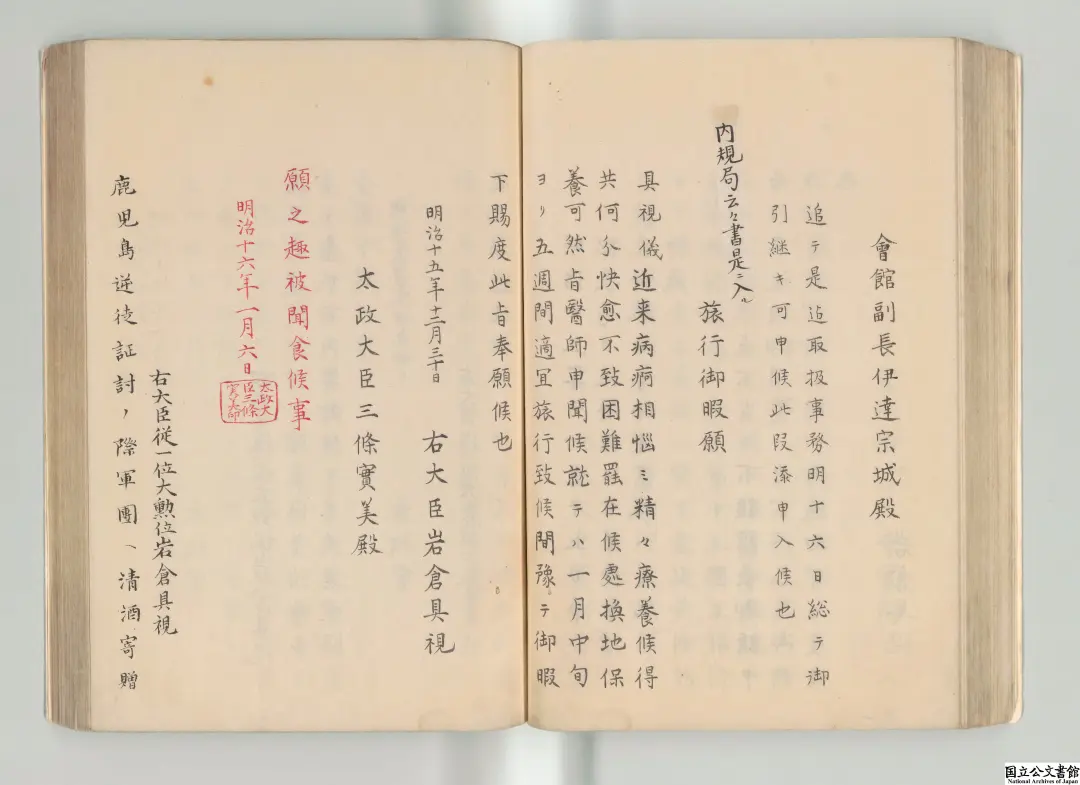 會館副長伊達宗城殿
追テ是迠取扱事務明十六日総テ御
引継キ可申候此段添申入候也
内規局云々書是ニ入ル
旅行御暇願
具視儀近来病痾相惱ミ精々療養候得
共何分快愈不致困難罷在候處換地保
養可然旨醫師申聞候就テハ一月中旬
ヨリ五週間適宜旅行致候間豫テ御暇
下賜度此旨奉願候也
明治十五年十二月三十日　右大臣岩倉具視
太政大臣三條實美殿
願之趣被聞食候事
明治十六年一月六日
太政大
臣三條
實美印
右大臣従一位大勲位岩倉具視
鹿児島逆徒証討ノ際軍團ヘ清酒寄贈
国立公文書館
National Archives of Japan